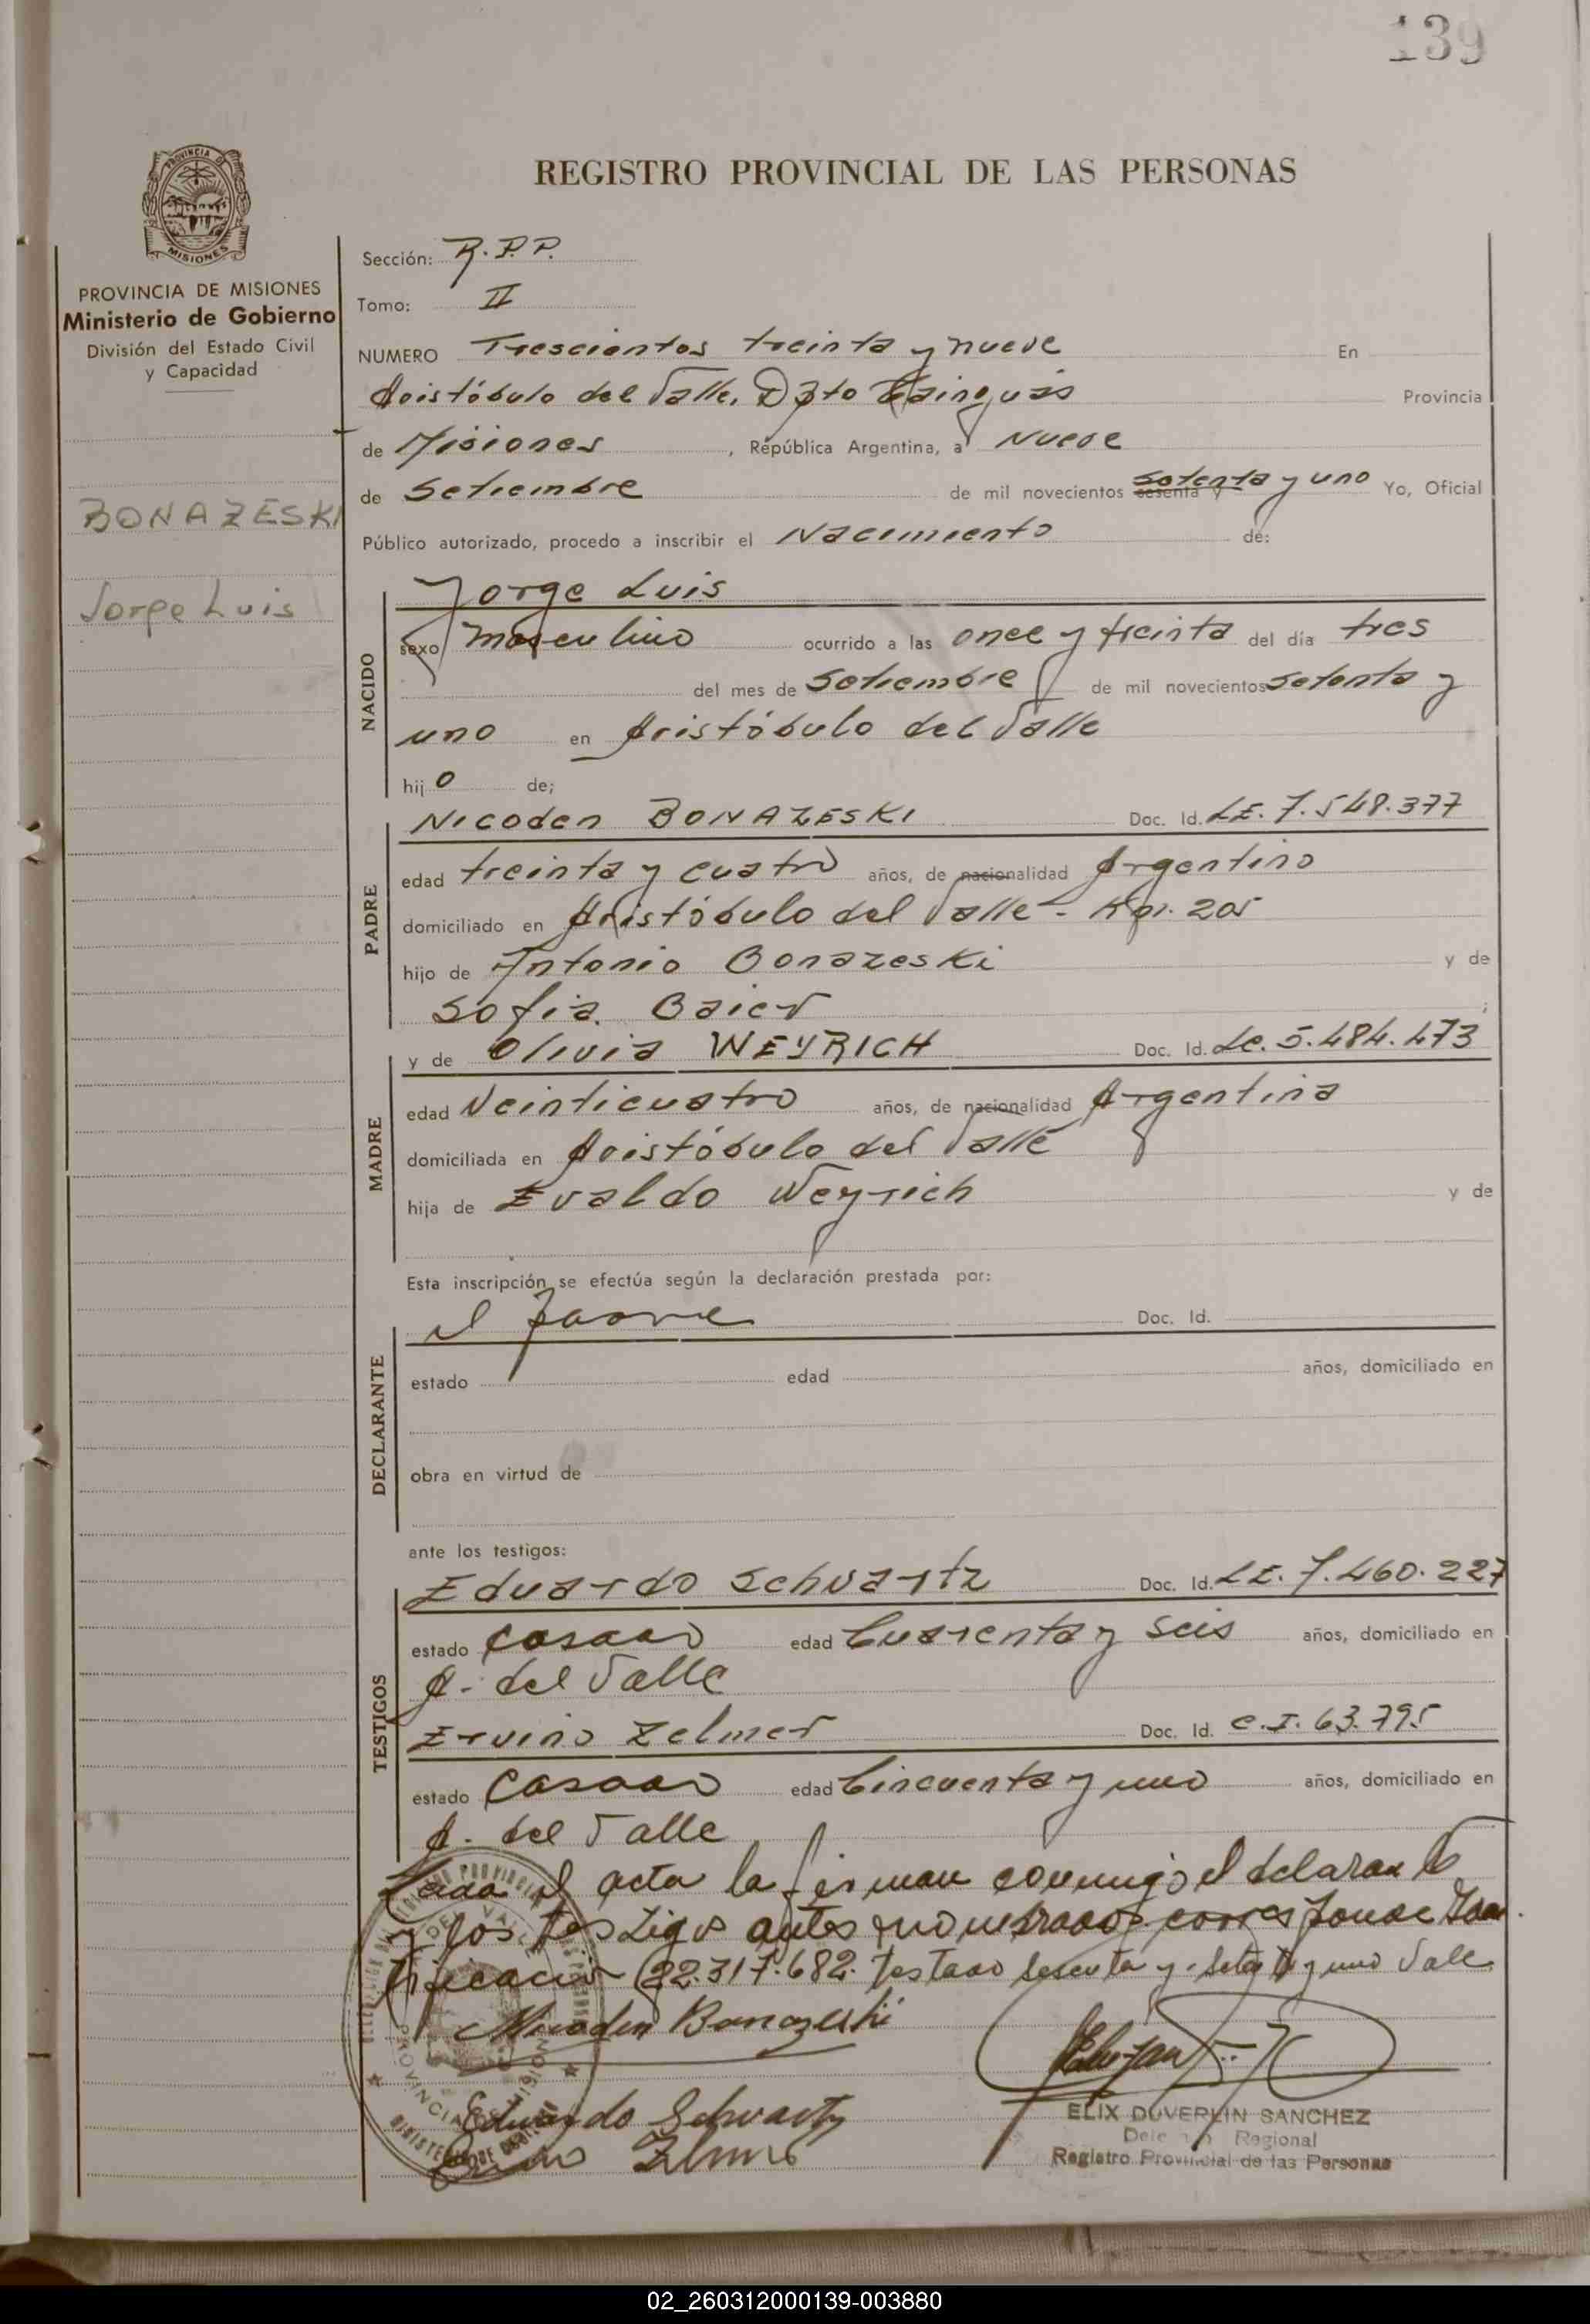 139
REGISTRO PROVINCIAL DE LAS PERSONAS
PROVINCIA DE MISIONES
Ministerio de Gobierno
División del Estado Civil
y Capacidad
BONAZESKI
Jorge Luis
Sección: R.P.P.
Tomo: II
NUMERO Trescientos treinta y nueve En
Aristóbulo del Valle, Dpto Cainguás Provincia
de Misiones, República Argentina, a Nueve
de Setiembre de mil novecientos sesenta y setenta y uno Yo, Oficial
Público autorizado, procedo a inscribir el Nacimiento de:
NACIDO
Jorge Luis
sexo masculino ocurrido a las once y treinta del día tres
del mes de Setiembre de mil novecientos setenta y
uno en Aristóbulo del Valle
hijo de;
PADRE
Nicoden BONAZESKI Doc. Id. LE. 7.548.377
edad treinta y cuatro años, de nacionalidad Argentino
domiciliado en Aristóbulo del Valle - Km. 205
hijo de Antonio Bonazeski y de
Sofia Baier;
MADRE
y de Olivia WEYRICH Doc. Id. Lc. 5.484.473
edad Veinticuatro años, de nacionalidad Argentina
domiciliada en Aristóbulo del Valle
hija de Evaldo Weyrich y de
Esta inscripción se efectúa según la declaración prestada por:
DECLARANTE
el padre Doc. Id.
estado edad años, domiciliado en
obra en virtud de
ante los testigos:
TESTIGOS
Eduardo Schvartz Doc. Id. LE. 7.460.227
estado casado edad Cuarenta y seis años, domiciliado en
A. del Valle
Ervino Zelmer Doc. Id. C.I. 63.795
estado casado edad Cincuenta y uno años, domiciliado en
A. del Valle
Leida el acta la firman conmigo el declarante
y los testigos antes nombrados corresponde Iden
tificación 22.317.682. Testado sesenta y. setenta y uno Vale
Nicoden Bonazeski
Eduardo Schvartz
ELIX DUVERLIN SANCHEZ
Regional
Registro Provincial de las Personas
02_260312000139-003880